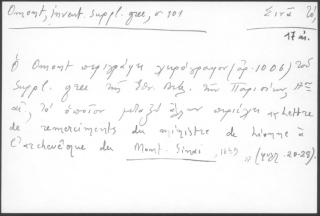 Omont, invent. suppl. grec, σ 101 Σινᾶ
17 αι.
Ὁ Omont περιγράφει χειρόγραφον (ἀρ. 1006) τοῦ
Suppl. grec τῆς Ἐθν. Βιβ. τῶν Παρισίων,
τὸ ὁποῖον μεταξὺ ἄλλων περιέχει "Lettre
de remerciments du ministre de Lionne à
l'archevêque du Mont Sinaï, 1659" (φφ. 20-28).